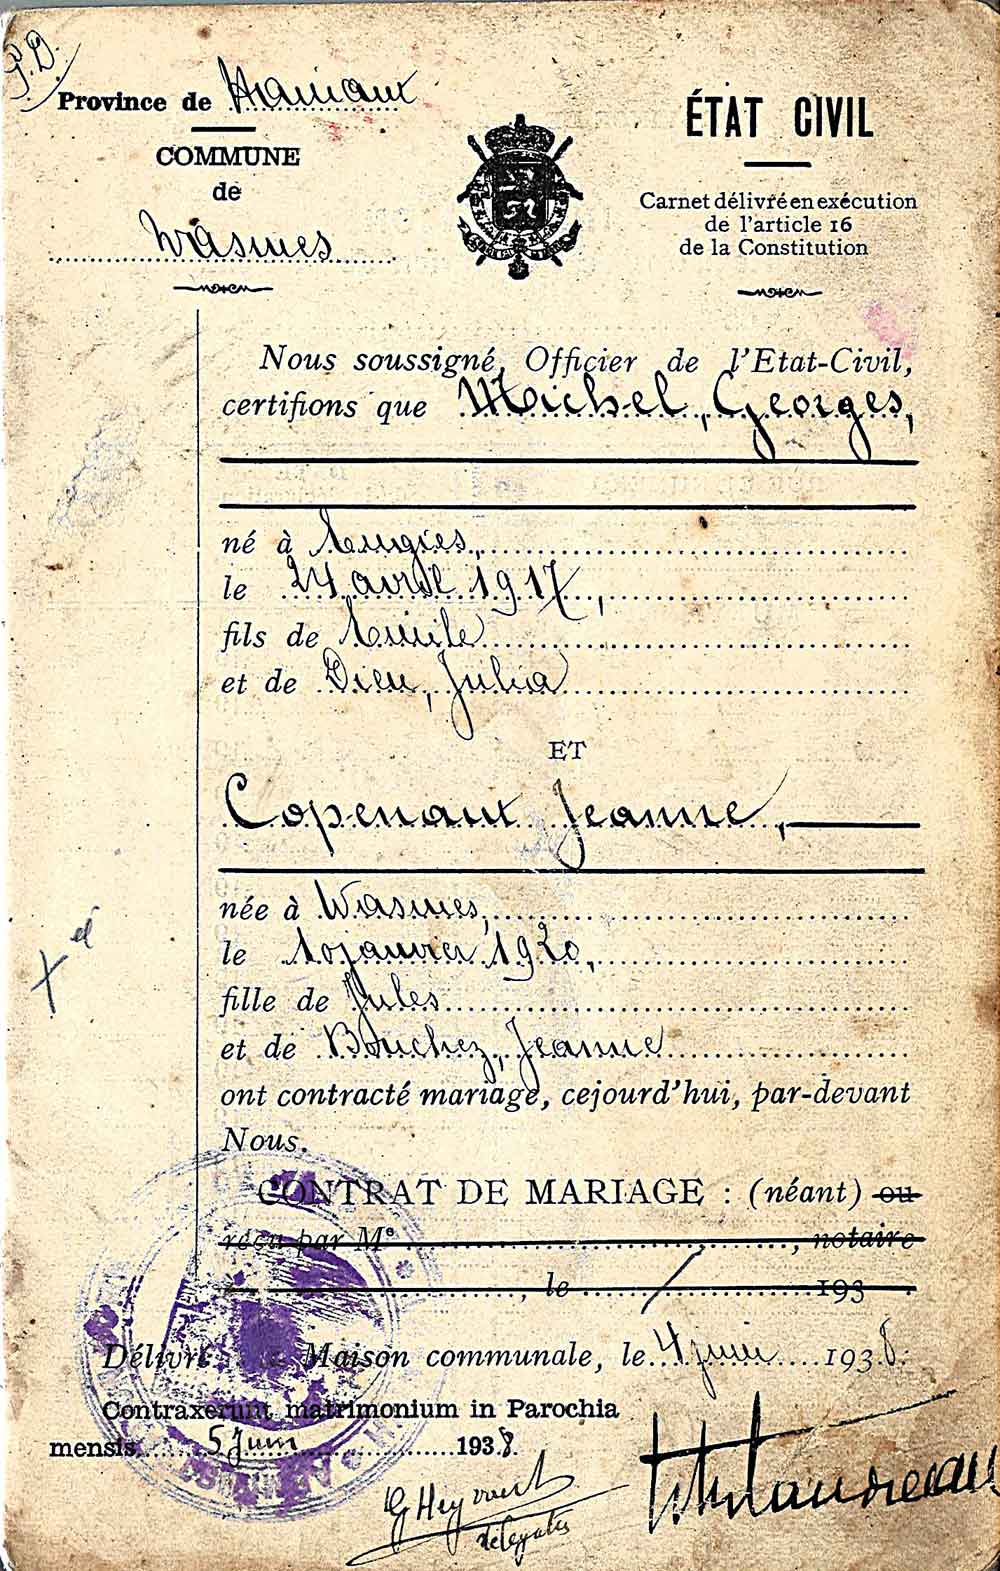 G.D.
Province de Hainaut
COMMUNE
de
Wasmes
ÉTAT CIVIL
Carnet délivré en exécution
de l'article 16
de la Constitution
Nous soussigné, Officier de l'Etat-Civil,
certifions que Michel, Georges,
né à Eugies,
le 24 avril 1917,
fils de Emile
et de Dieu, Julia
ET
Copenaut Jeanne,
née à Wasmes,
le 10 janvier 1920,
fille de Jules
et de Bouchez, Jeanne
ont contracté mariage, cejourd'hui, par-devant
Nous.
CONTRAT DE MARIAGE : (néant) ou
reçu par Me , notaire
à , le 193 .
Délivré à la Maison communale, le 4 juin 1938.
Contraxerunt matrimonium in Parochia
mensis 5 Juin 1938.
delegatus